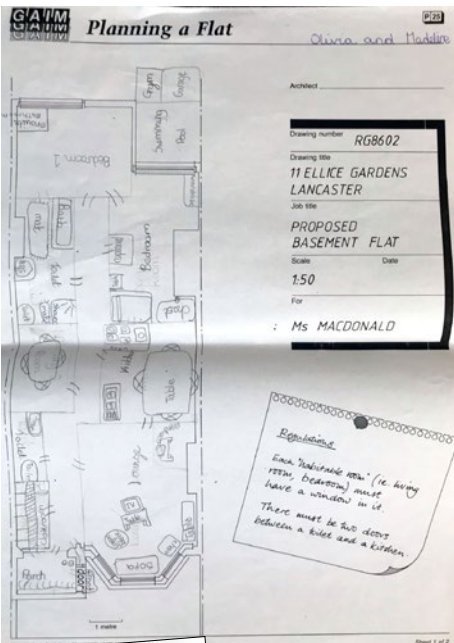 GAIM
GAIM
GAIM
Planning a Flat
P 25
Olivia and Madeline
Architect
Drawing number RG8602
Drawing title
11 ELLICE GARDENS
LANCASTER
Job title
PROPOSED
BASEMENT FLAT
Scale Date
1:50
For
: Ms MACDONALD
Regulations
Each "habitable room" (ie. living
room, bedroom) must
have a window in it.
There must be two doors
between a toilet and a kitchen.
Gym
Garage
Swimming
Pool
Bedroom 2
Bath
mat
Bedroom
Toilet
Table
Lounge
TV
Sofa
Porch
1 metre
Sheet 1 of 2